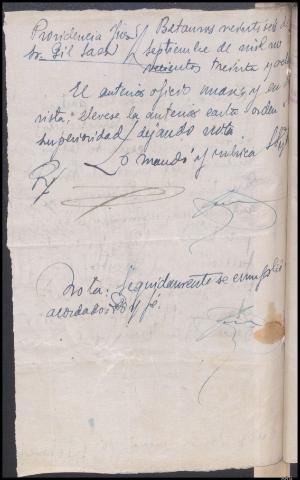 Providencia Juez
Sr. Gil Saenz
Betanzos veintiseis de
septiembre de mil no
vecientos treinta y ocho
El anterior oficio mano y en
vista; llevese la anterior carta orden
superioridad dejando nota.
Lo mandó y rubrica S.Sª
Nota: Seguidamente se cumplió
acordado. Doy fé.